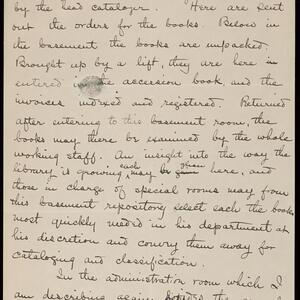 by the head cataloger. Here are sent
out the orders for the books. Below in
the basement the books are unpacked.
Brought up by a lift, they are here in
entered in the accession book, and the
invoices indexed and registered. Returned
after entering to this basement room, the
books may there be examined by the whole
working staff. An insight into the way the
library is growing each may be given here, and
those in charge of special rooms may from
this basement repository select each the books
most quickly needed in his department at
his discretion and convey them away for
cataloging and classification.
In the administration room which I
am describing again, the